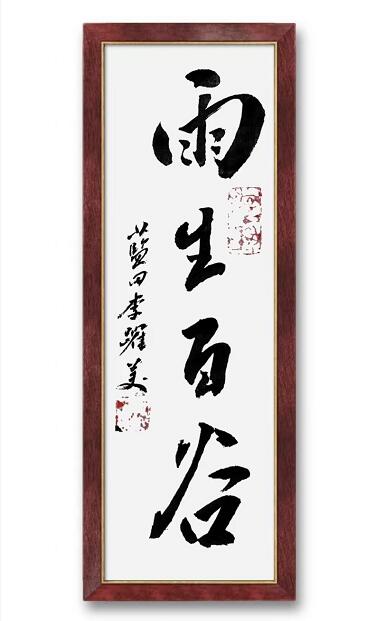 雨生百谷
藍田李躍美